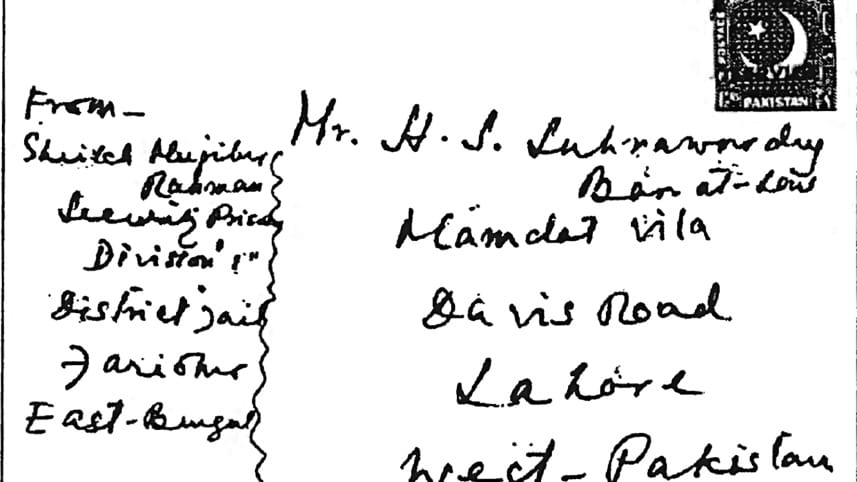 From-
Sheikh Mujibur
Rahman
Security Prison
Division "I"
District Jail
Faridpur
East-Bengal
Mr. H. S. Suhrawardy
Bar-at-Law
Mamdot Vila
Davis Road
Lahore
West-Pakistan
POSTAGE
PAKISTAN